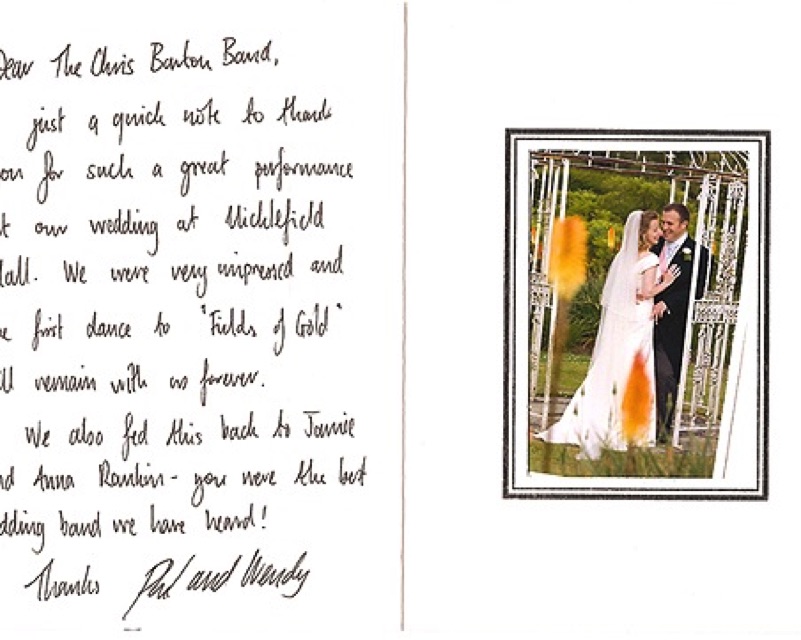 Dear The Chris Barton Band,
just a quick note to thank
ou for such a great performance
t our wedding at Micklefield
Hall. We were very impressed and
e first dance to "Fields of Gold"
ll remain with us forever.
We also fed this back to Jamie
nd Anna Rankin - you were the best
dding band we have heard!
Thanks Phil and Wendy